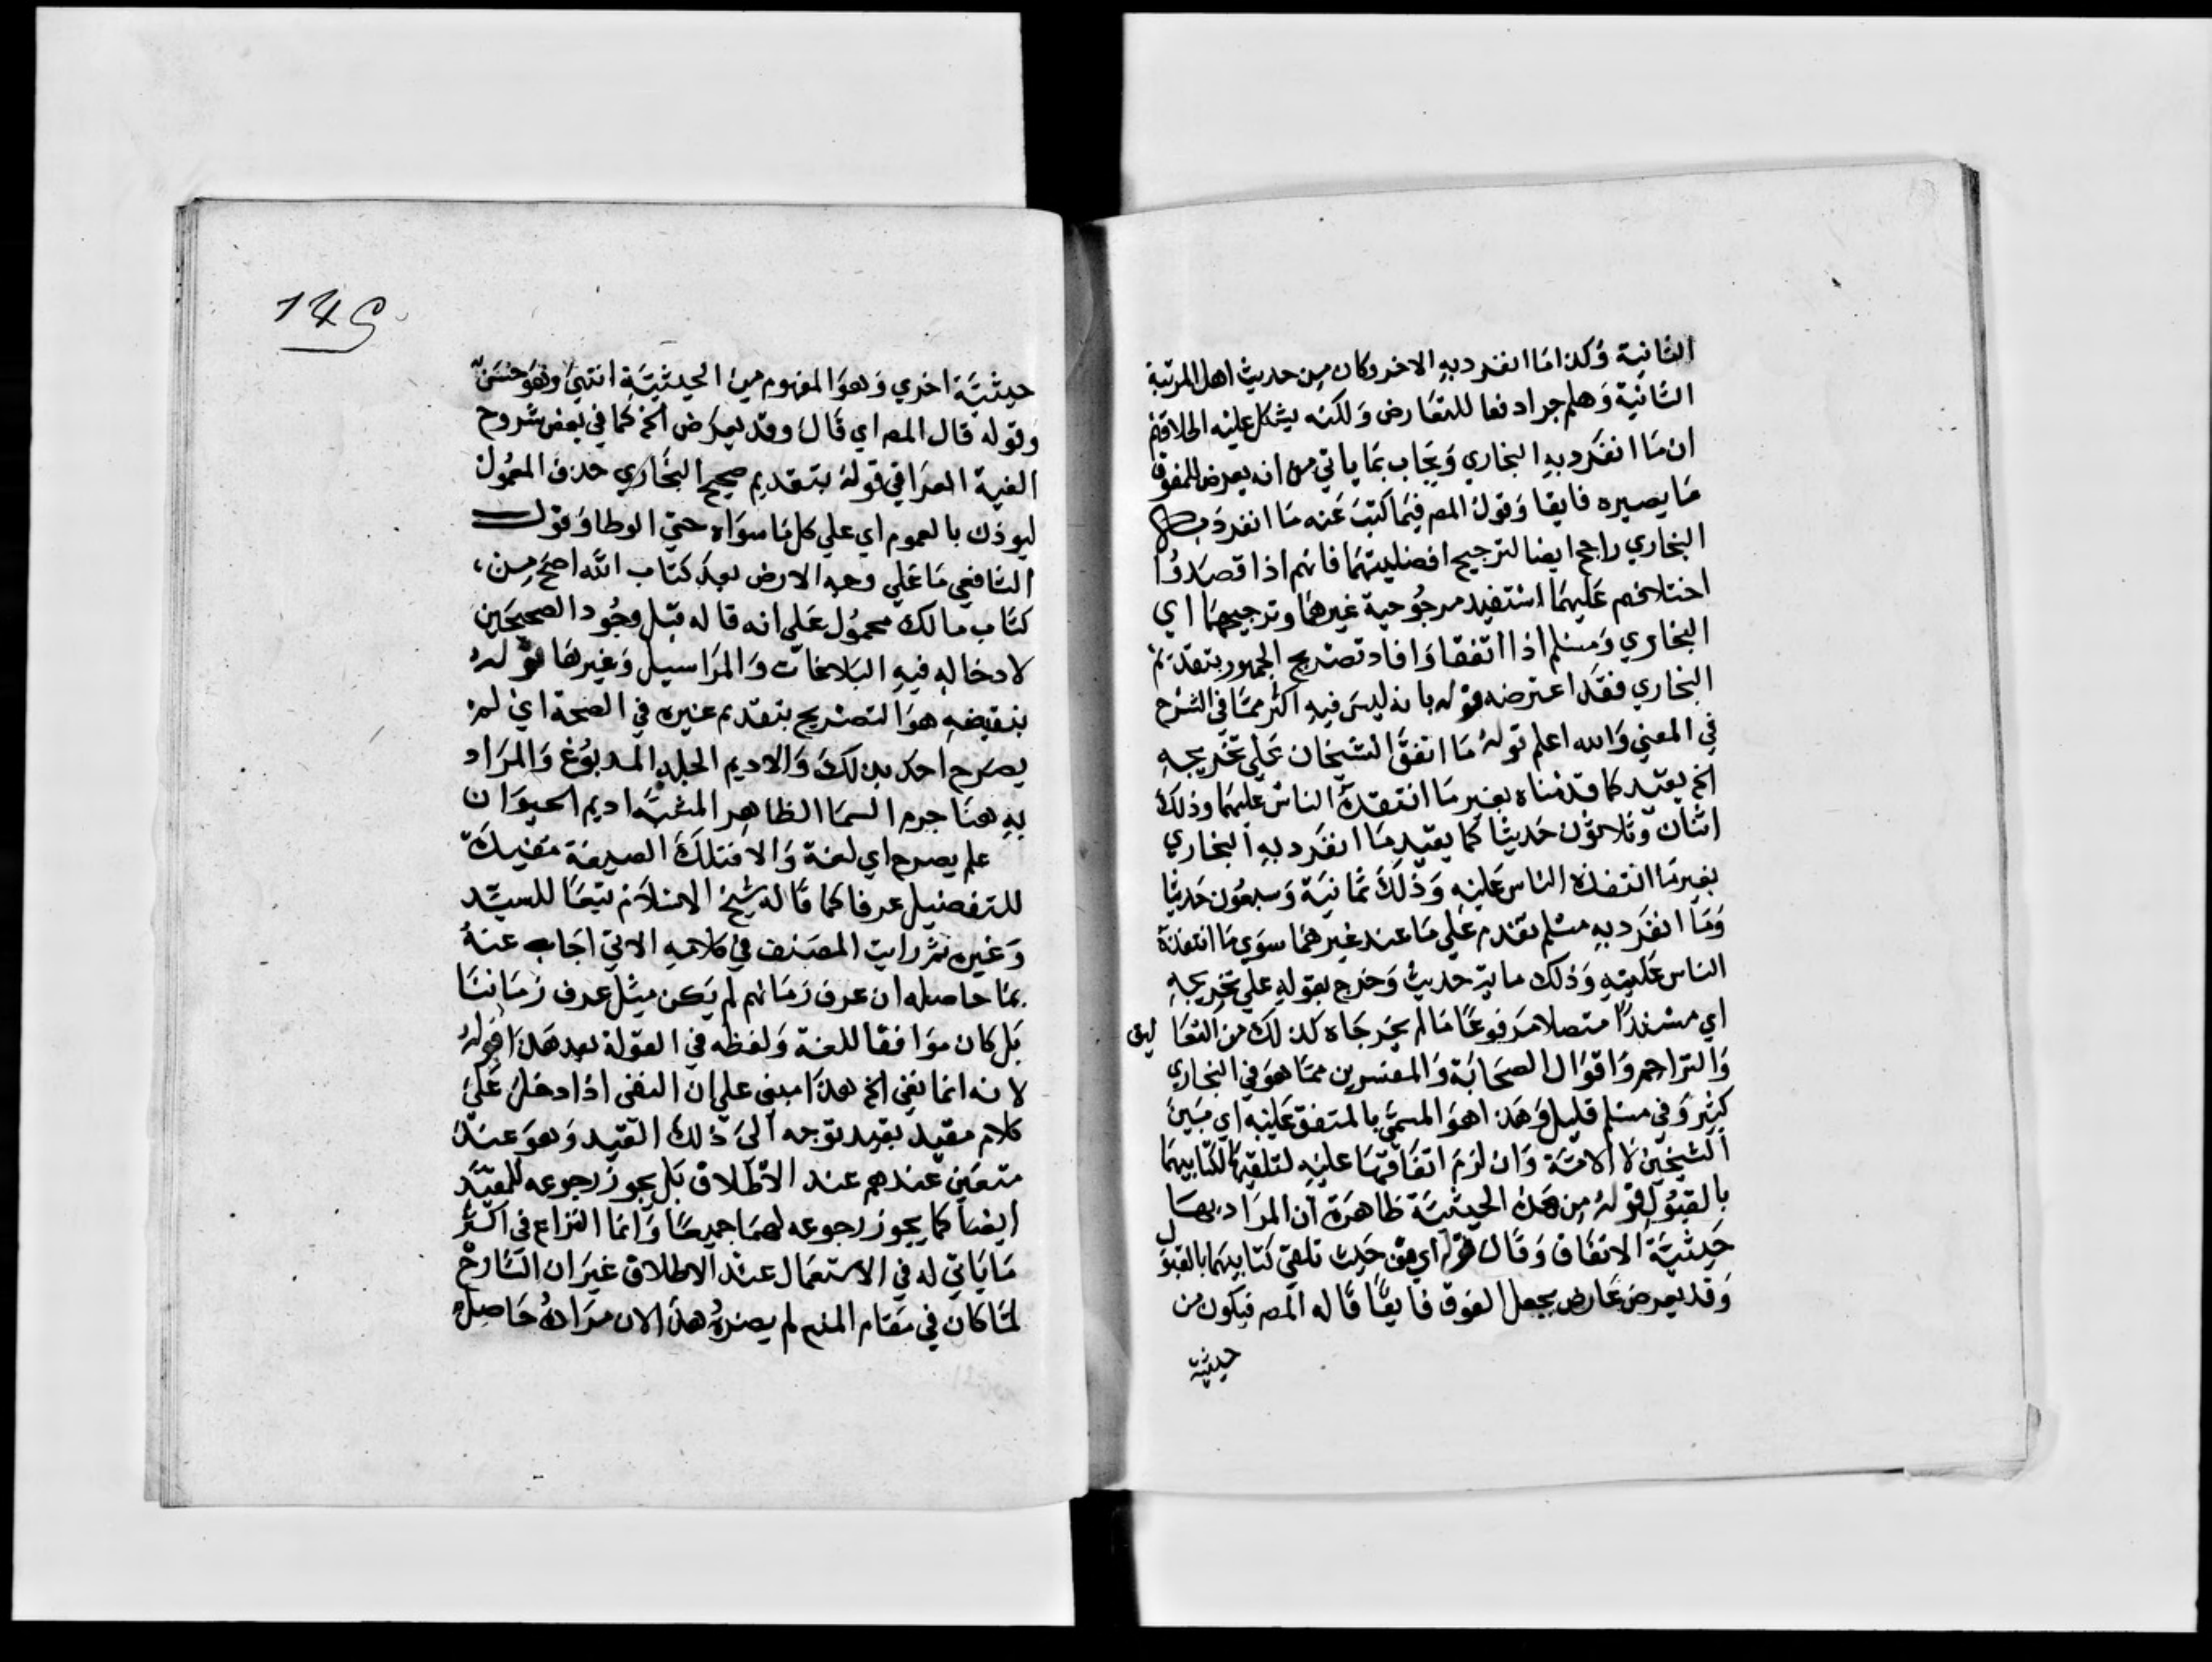 الثانية وكذا ما انفرد به الاخر وكان من حديث اهل المرتبة
الثانية وهلم جرا دفعا للتعارض ولكنه يشكل عليه اطلاقهم
ان ما انفرد به البخاري ويجاب بما ياتي من انه يعرض للمفوق
ما يصيره فايقا وقول المص فيما كتب عنه ما انفرد به
البخاري راجح ايضا لترجيح افضليتهما فانهم اذا قصدوا
اختلافهم عليهما استفيد مرجوحية غيرهما وترجيحهما اي
البخاري ومسلم اذا اتفقا وافاد تصريح الجمهور بتقديم
البخاري فقد اعترضه قوله بانه ليس فيه اكثر مما في الشرح
في المعني والله اعلم قوله ما اتفق الشيخان علي تخريجه
الخ يقيد كما قدمناه بغير ما انتقده الناس عليهما وذلك
اثنان وثلاثون حديثا كما يقيد ما انفرد به البخاري
بغير ما انتقده الناس عليه وذلك ثمانية وسبعون حديثا
وما انفرد به مسلم يقدم علي ما عند غيرهما سوي ما انتقده
الناس عليه وذلك ماية حديث وخرج بقوله علي تخريجه
اي مسندا متصلا مرفوعا ما لم يخرجاه كذلك من التعا ليق
والتراجم واقوال الصحابة والمفسرين مما هو في البخاري
كثير وفي مسلم قليل وهذا هو المسمي بالمتفق عليه اي بين
الشيخين لا الامة وان لزم اتفاقها عليه لتلقيها لكتابيهما
بالقبول قوله من هذه الحيثية ظاهره ان المراد بها
حيثية الاتفاق وقال قوله اي من حيث تلقي كتابيهما بالقبول
وقد يعرض عارض يجعل المفوق فايقا قاله المص فيكون من
حيثية
145
حيثية اخري وهو المفهوم من الحيثية انتهي وهو حسن
وقوله قال المص اي قال وقد يعرض الخ كما في بعض شروح
الفية العراقي قوله بتقديم صحيح البخاري حذف المعمول
ليوذن بالعموم اي علي كل ما سواه حتي الموطا وقول
الشافعي ما علي وجه الارض بعد كتاب الله اصح من
كتاب مالك محمول علي انه قاله قبل وجود الصحيحين
لادخاله فيه البلاغات والمراسيل وغيرها قوله
بنقيضه هو التصريح بتقديم غيره في الصحة اي لم
يصرح احد بذلك والاديم الجلد المدبوغ والمراد
به هنا جرم السما الظاهر المشبه اديم الحيوان
علم يصرح اي لغة والا فتلك الصيغة مفيدة
للتفضيل عرفا كما قاله شيخ الاسلام تبعا للسيد
وغيره ثم رايت المصنف في كلامه الاتي اجاب عنه
بما حاصله ان عرف زمانهم لم يكن مثل عرف زماننا
بل كان موافقا للغة ولفظه في القولة بعد هذا قوله
لانه انما نفي الخ هذا مبني علي ان النفي اذا دخل علي
كلام مقيد بقيد توجه الي ذلك القيد وهو عند
متعين عندهم عند الاطلاق بل يجوز رجوعه للمقيد
ايضا كما يجوز رجوعه لهما جميعا وانما النزاع في اكثر
ما ياتي له في الاستعمال عند الاطلاق غير ان الشارح
لما كان في مقام المنع لم يضره هذا لان مراده حاصل